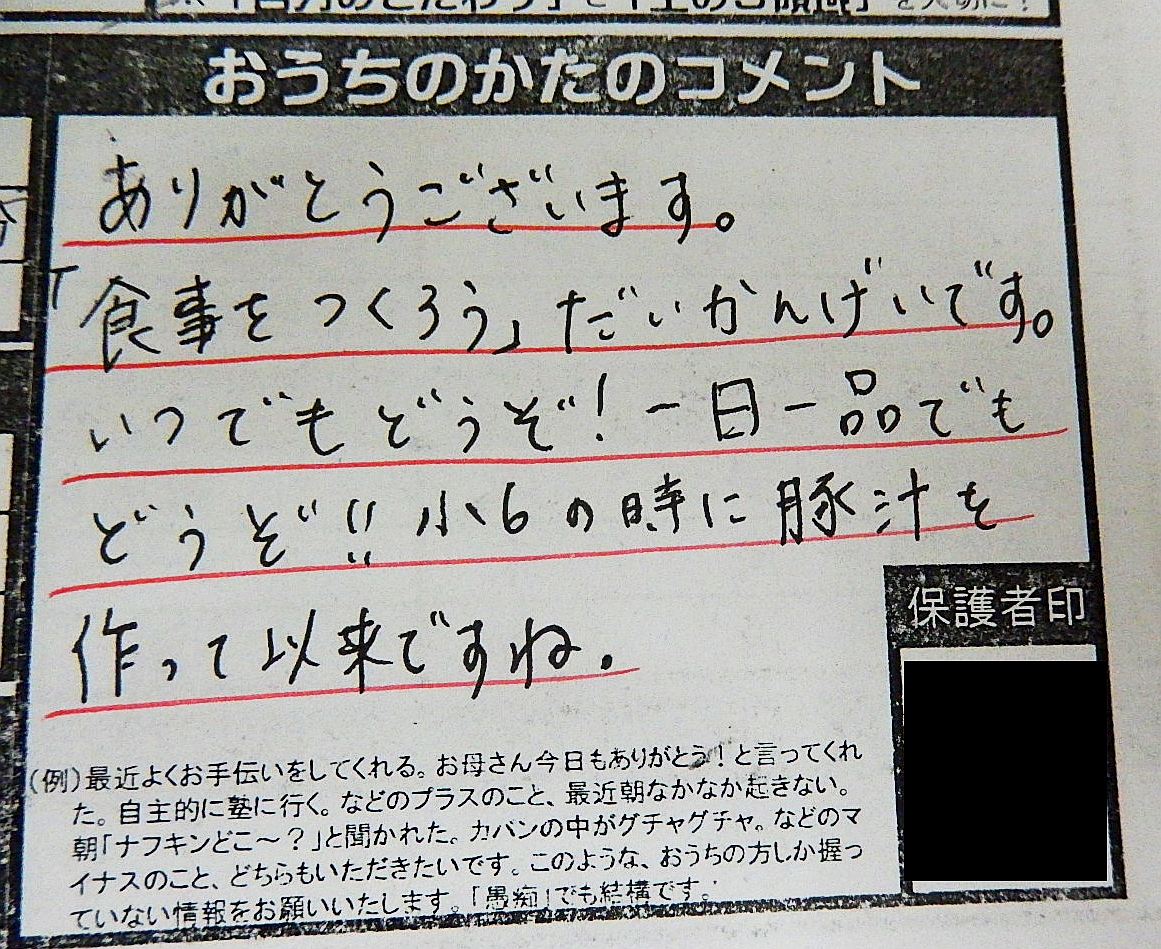 おうちのかたのコメント
ありがとうございます。
「食事をつくろう」だいかんげいです。
いつでもどうぞ！一日一品でも
どうぞ!!小6の時に豚汁を
作って以来ですね.
保護者印
(例)最近よくお手伝いをしてくれる。お母さん今日もありがとう！と言ってくれ
た。自主的に塾に行く。などのプラスのこと、最近朝なかなか起きない。
朝「ナフキンどこ～？」と聞かれた。カバンの中がグチャグチャ。などのマ
イナスのこと、どちらもいただきたいです。このような、おうちの方しか握っ
ていない情報をお願いいたします。「愚痴」でも結構です。